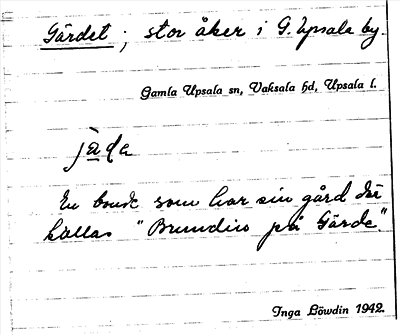 Gärdet; stor åker i G. Upsala by.
Gamla Upsala sn, Vaksala hd, Upsala l.
jäḍe
En bonde som har sin gård där
kallas "Brundin på Gärde."
Inga Löwdin 1942.